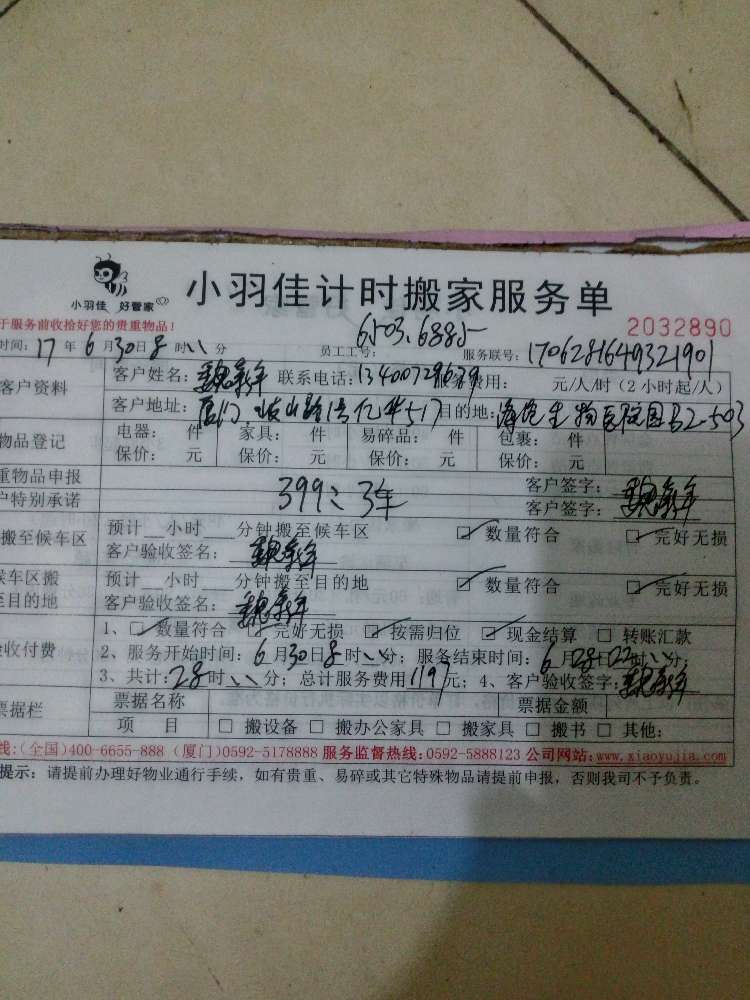 小羽佳 好管家
小羽佳计时搬家服务单
于服务前收拾好您的贵重物品!
2032890
时间: 17 年 6 月 30 日 8 时 分 员工工号: 6503.6885 服务联号: 1706281649321901
客户资料
客户姓名: 联系电话: 费用: 元/人/时 (2 小时起/人)
客户地址: 厦门 517 目的地: 海沧生物医院园B2-503
物品登记
电器: 件 家具: 件 易碎品: 件 包裹: 件
保价: 元 保价: 元 保价: 元 保价: 元
重物品申报 客户签字:
户特别承诺 399 3年 客户签字:
搬至候车区
预计__小时___分钟搬至候车区 ☑ 数量符合 ☑ 完好无损
客户验收签名:
候车区搬
至目的地
预计__小时___分钟搬至目的地 ☑ 数量符合 ☑ 完好无损
客户验收签名:
验收付费
1、☑ 数量符合 ☑ 完好无损 ☑ 按需归位 ☑ 现金结算 □ 转账汇款
2、服务开始时间: 6 月 30 日 8 时 分; 服务结束时间: 6 月 时 分;
3、共计: 28 时 分; 总计服务费用 1197 元; 4、客户验收签字:
票据栏
票据名称 票据金额
项 目 □ 搬设备 □ 搬办公家具 □ 搬家具 □ 搬书 □ 其他:
线:(全国)400-6655-888 (厦门)0592-5178888 服务监督热线:0592-5888123 公司网站:www.xiaoyujia.com
提示: 请提前办理好物业通行手续, 如有贵重、易碎或其它特殊物品请提前申报, 否则我司不予负责。